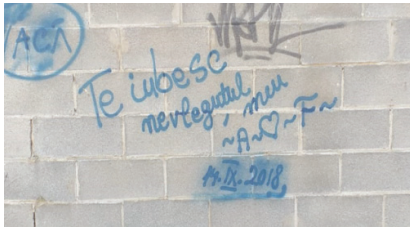 ACĂ
Te iubesc
nevleguțul meu
~A~♡~F~
14.IX.2018